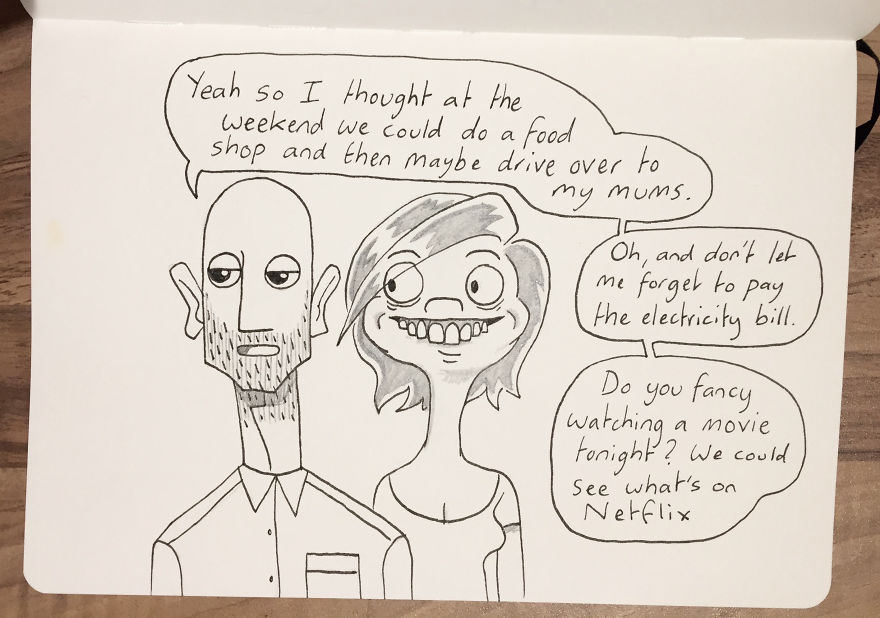 Yeah so I thought at the
weekend we could do a food
shop and then maybe drive over to
my mums.
Oh, and don't let
me forget to pay
the electricity bill.
Do you fancy
watching a movie
tonight? We could
see what's on
Netflix